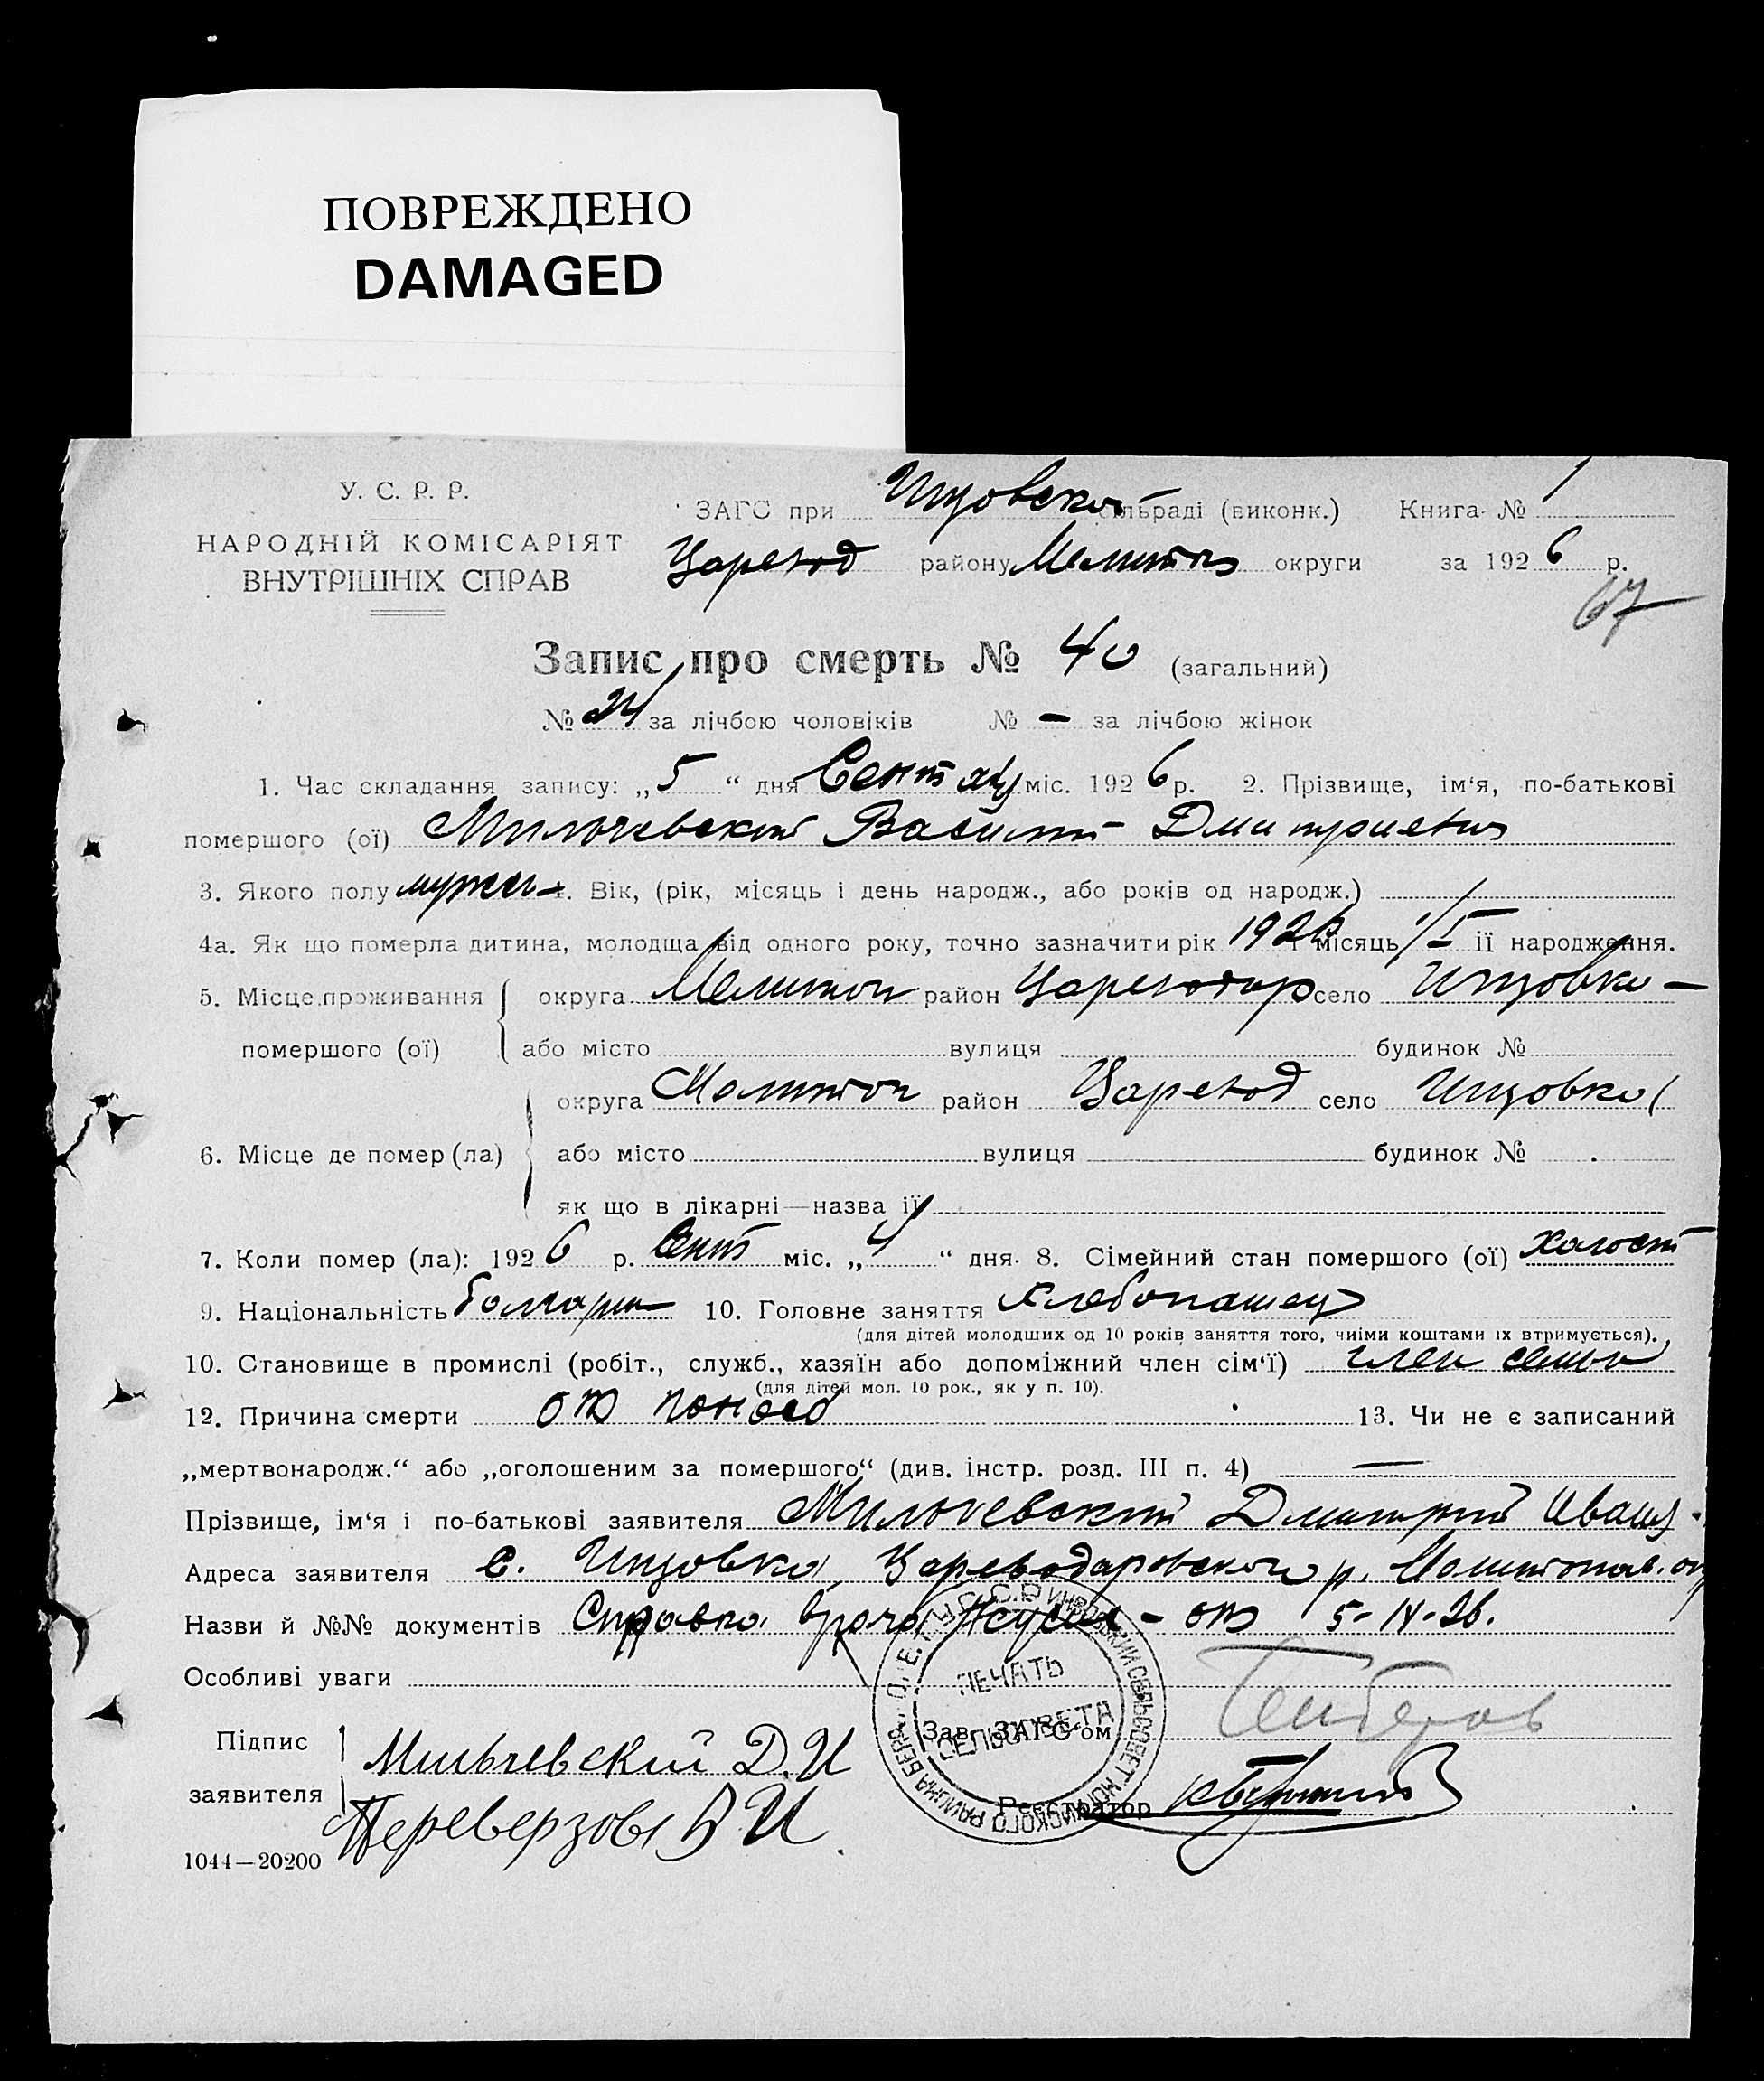 ПОВРЕЖДЕНО
DAMAGED
У. С. Р. Р.
НАРОДНІЙ КОМІСАРІЯТ
ВНУТРІШНІХ СПРАВ
ЗАГС при Инзовской сільраді (виконк.) Книга № 1
Царевод району Мелитоп округи за 1926 р.
67
Запис про смерть № 40 (загальний)
№ 24 за лічбою чоловіків № — за лічбою жінок
1. Час складання запису: „5“ дня міс. 1926 р. 2. Прізвище, ім‘я, по-батькові
помершого (ої) Мильчевский Василий Дмитриевич
3. Якого полу мужск 4. Вік, (рік, місяць і день народж., або років од народж.)
4а. Як що померла дитина, молодща від одного року, точно зазначити рік 1926 місяць 1/I її народження.
5. Місце проживання помершого (ої) округа Мелитоп район Цареводар село Инзовка —
або місто вулиця будинок №
6. Місце де помер (ла) округа Мелитоп район Царевод село Инзовка
або місто вулиця будинок №
як що в лікарні—назва її
7. Коли помер (ла): 1926 р. Сент міс. „4“ дня. 8. Сімейний стан помершого (ої) холост
9. Національність болгарин 10. Головне заняття хлебопашец
(для дітей молодших од 10 років заняття того, чиїми коштами їх втримується).
10. Становище в промислі (робіт., служб., хазяїн або допоміжний член сім‘ї) член семьи
(для дітей мол. 10 рок., як у п. 10).
12. Причина смерти от 13. Чи не є записаний
„мертвонародж.“ або „оголошеним за помершого“ (див. інстр. розд. III п. 4) —
Прізвище, ім‘я і по-батькові заявителя Мильчевский Дмитрий Иванов.
Адреса заявителя с. Инзовка, Цареводаровского р. Мелитопав. окр
Назви й №№ документів Справка врача от 5-IX-26.
Особливі уваги
ПЕЧАТЬ
СЕЛЬСОВЕТА
Підпис
заявителя
Мильчевский Д.И
Зав. ЗАГС-ом
Переверзовъ И
Реєстратор
1044—20200